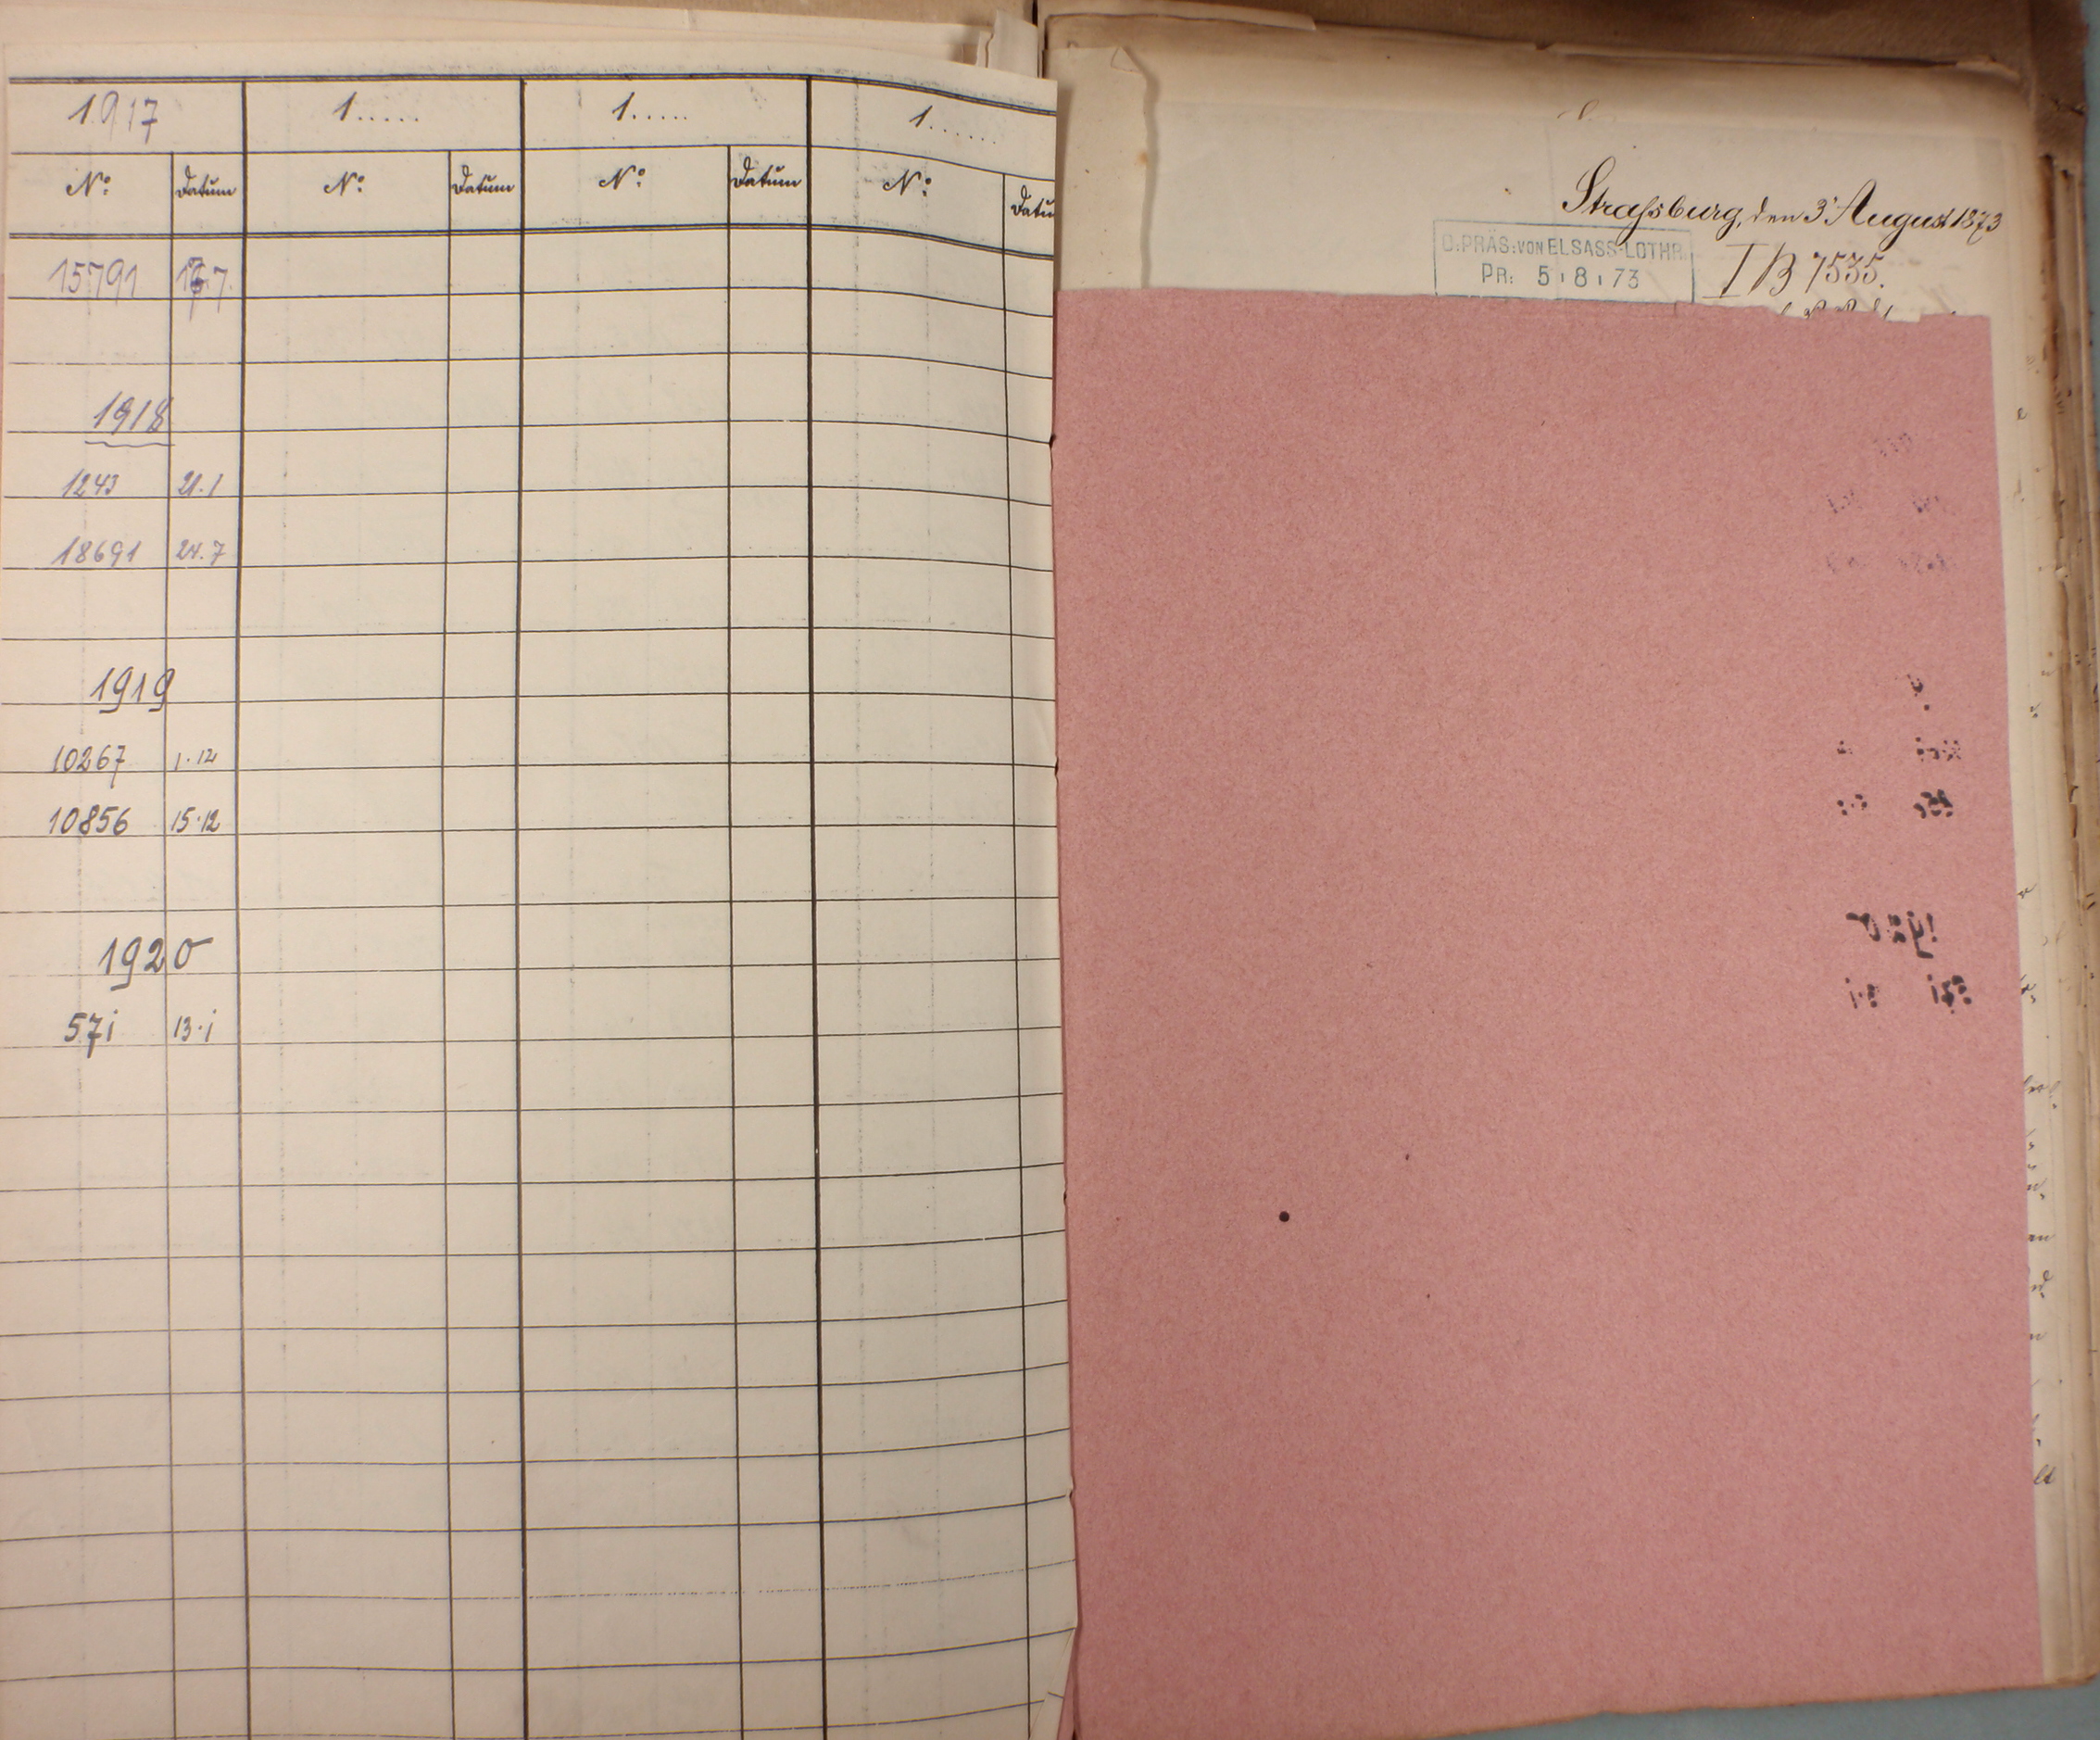 1917 1..... 1..... 1......
No: Datum No: Datum No: Datum No: Datu
15791
1918
1243 21.1
18691 24.7
1919
10267 1.12
10856 15.12
1920
571 13.1
Strassburg, den 3. August 1873
O.PRÄS: VON ELSASS-LOTHR.
PR: 5.8.73
I B 7535.